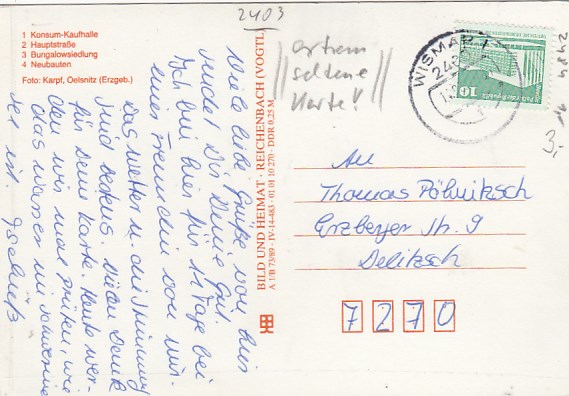 2403
1 Konsum-Kaufhalle
2 Hauptstraße
3 Bungalowsiedlung
4 Neubauten
Foto: Karpf, Oelsnitz (Erzgeb.)
Viele liebe Grüße von hier
sendet Dir Deine
Ich bin hier für 11 Tage bei
einer Freundin von mir.
Das Wetter u. die Stimmung
sind bestens. Vielen Dank
für Deine Karte. Heute wer-
den wir mal prüfen, wie
das Wasser im
der ist. Tschüß
BILD UND HEIMAT · REICHENBACH (VOGTL)
A 1/B 75/89 · IV-14-483 · 01 01 10 270 · DDR 0,25 M
extrem
seltene
Karte!
WISMAR 1
10
2484
3,-
An
Thomas Pölnitzsch
Erzberger Str. 9
Delitzsch
7270